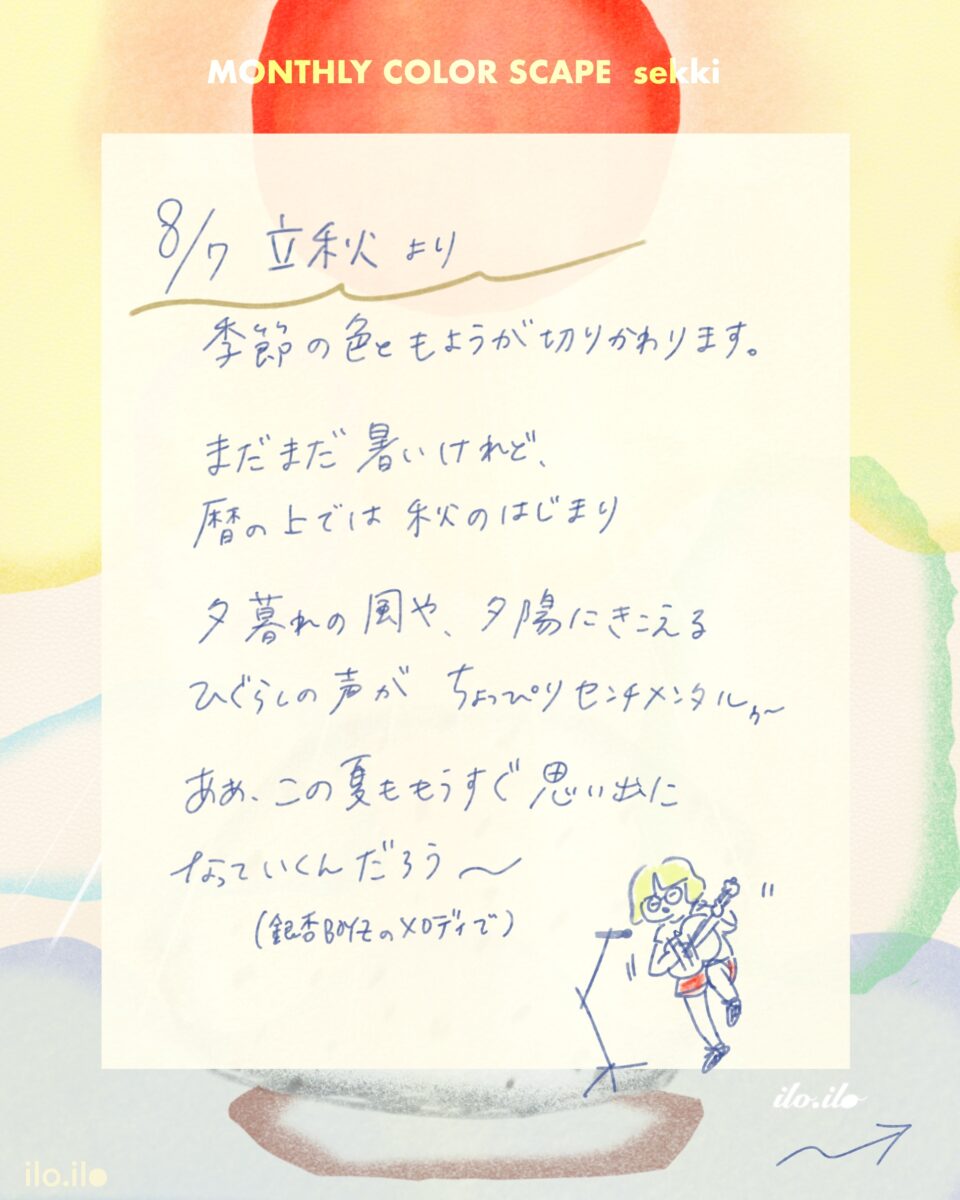 MONTHLY COLOR SCAPE sekki
8/7 立秋より
季節の色ともようが切りかわります。
まだまだ暑いけれど、
暦の上では秋のはじまり
夕暮れの風や、夕陽にきこえる
ひぐらしの声が ちょっぴりセンチメンタルぅ〜
ああ、この夏ももうすぐ思い出に
なっていくんだろう〜
(銀杏BOYZのメロディで)
ilo.ilo
ilo.ilo